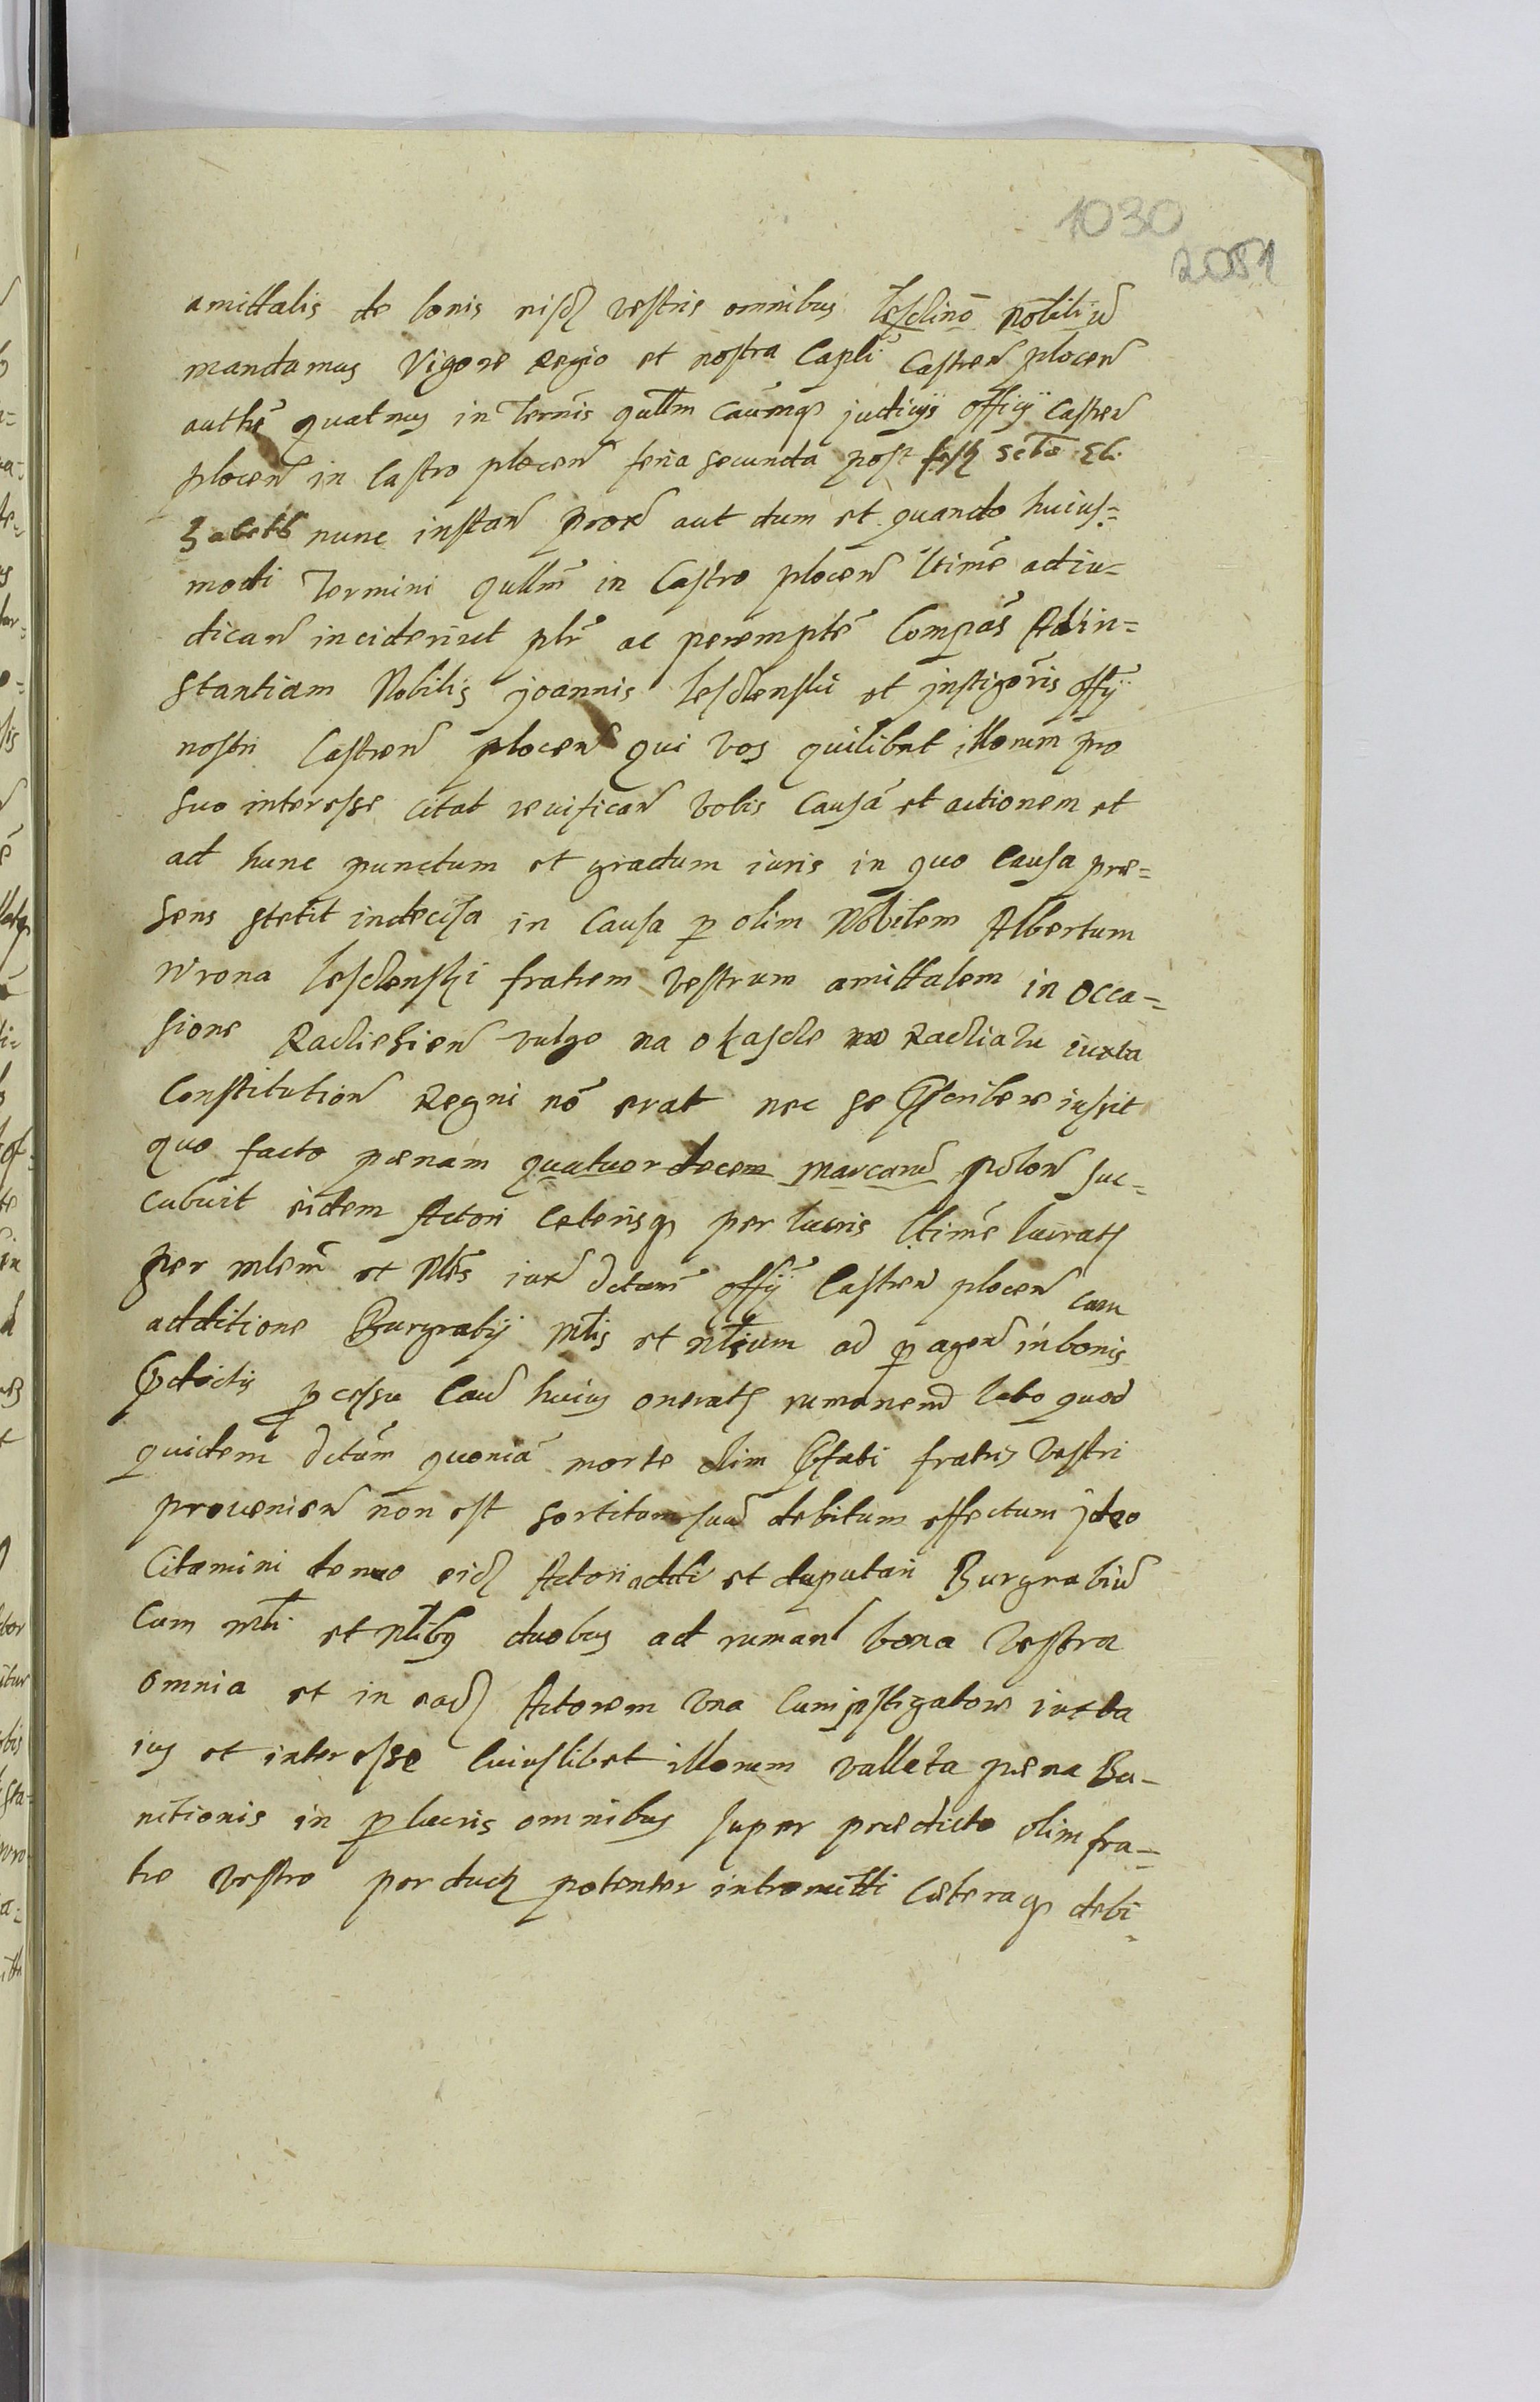 1030
2051
amittalis de bonis eisdȝ vestris omnibus nobiliū
mandamus Vigore Regio et nostra Capli Castreñ ploceñ
authē quatnus in Termīs qullm caūmqȝ judicijs officij Castreñ
ploceñ in Castro ploceñ feria secunda post fest sctæ Eli-
zabeth nunc instañ prox aut dum et quando huius-
modi Termini qullm in Castro ploceñ ltimē adiu-
dicañ inciderint plr ac peremptē Compās Ad in-
stantiam Nobilis Joannis et jnstigōris offij
nostri Castreñ ploceñ qui vos quilibet illorum pro
suo interesse citat revificañ vobis Causā et actionem et
ad hunc punctum et gradum iuris in quo Causa præ-
sens stetit indecisa in Causa p olim Nobilem Albertum
Wrona fratrem vestrum amittalem in occa-
sione vulgo na okascie iuxta
Constitution Regni nō erat nec se scribere iussit
quo facto pænam quatuordecem marcarū poloñ suc-
cubuit eidem Actori Ceterisqȝ per lucris ltimē lucratȝ
per mlem et Nles iux dctam offij Castreñ ploceñ cum
additione Burgrabij Mlis et nlium ad p ageñ in bonis
pdictis pcessu Cau huius oneratȝ rumaneñ lato quod
quidem dctām quoniā morte olim pfati fratris vestri
proveniеñ non est sortitam suū debitum effectum jdeo
Citamini denuo eidȝ Actori addi et deputari Burgrabiū
Cum mli et Nlibȝ duobus ad rumanđ bona vestra
omnia et in eadȝ Actorem Una Cum jnstigatore iuxta
ius et interesse Cuiuslibet illorum vallata pæna Ba-
nitionis in plucris omnibus super prædicto olim fra-
tre vestro per ductȝ potenter intromitti Cæteraqȝ debi-